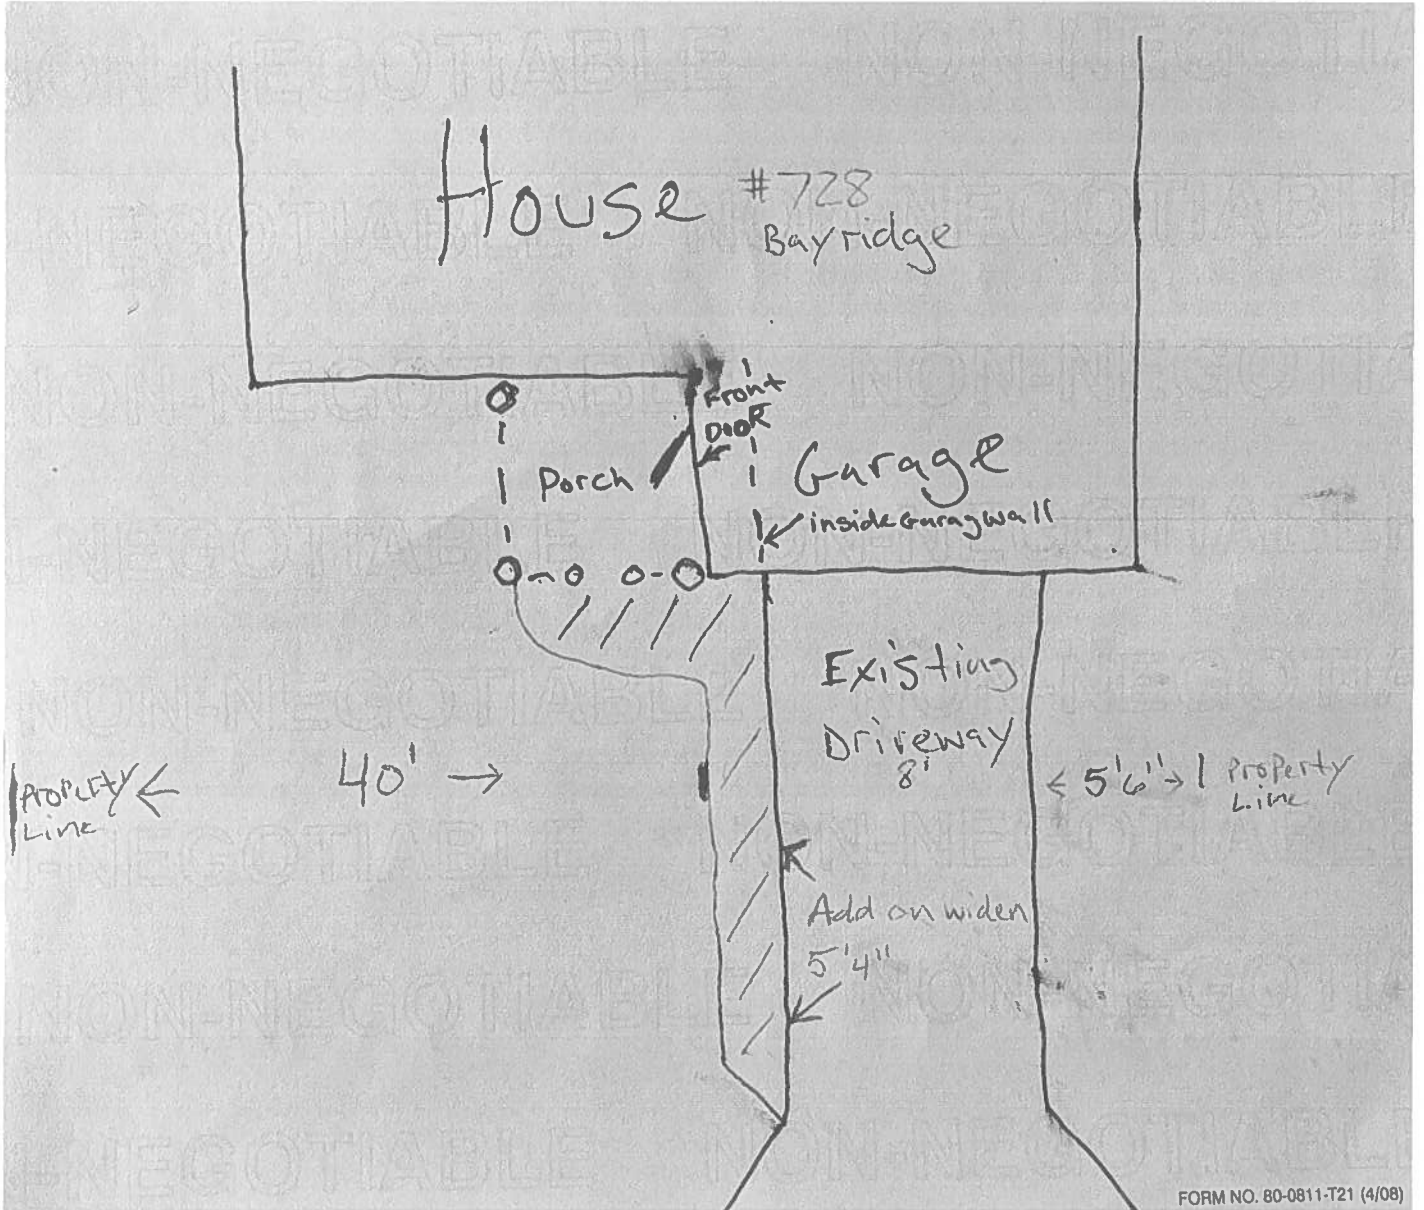 NON-NEGOTIABLE NON-NEGOTIA
House #728
Bayridge
Front
DOOR
Porch
Garage
insideGaragwall
Existing
Driveway
8'
Property
Line
40'
5'6"
Property
Line
Add on widen
5'4"
NON-NEGOTIABLE
FORM NO. 80-0811-T21 (4/08)